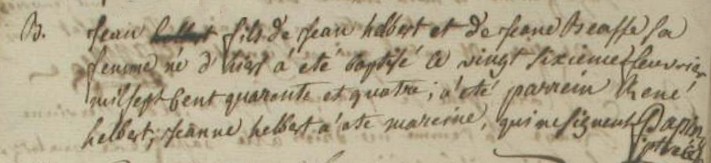 B. Jean fils de Jean helbert et de Jeane Beasse Sa
femme né d'hier à été baptisé le vingt sixieme feuvrier
mil sept Cent quarente et quatre; a été parrein René
helbert, Jeanne helbert a été mareine, qui ne signent